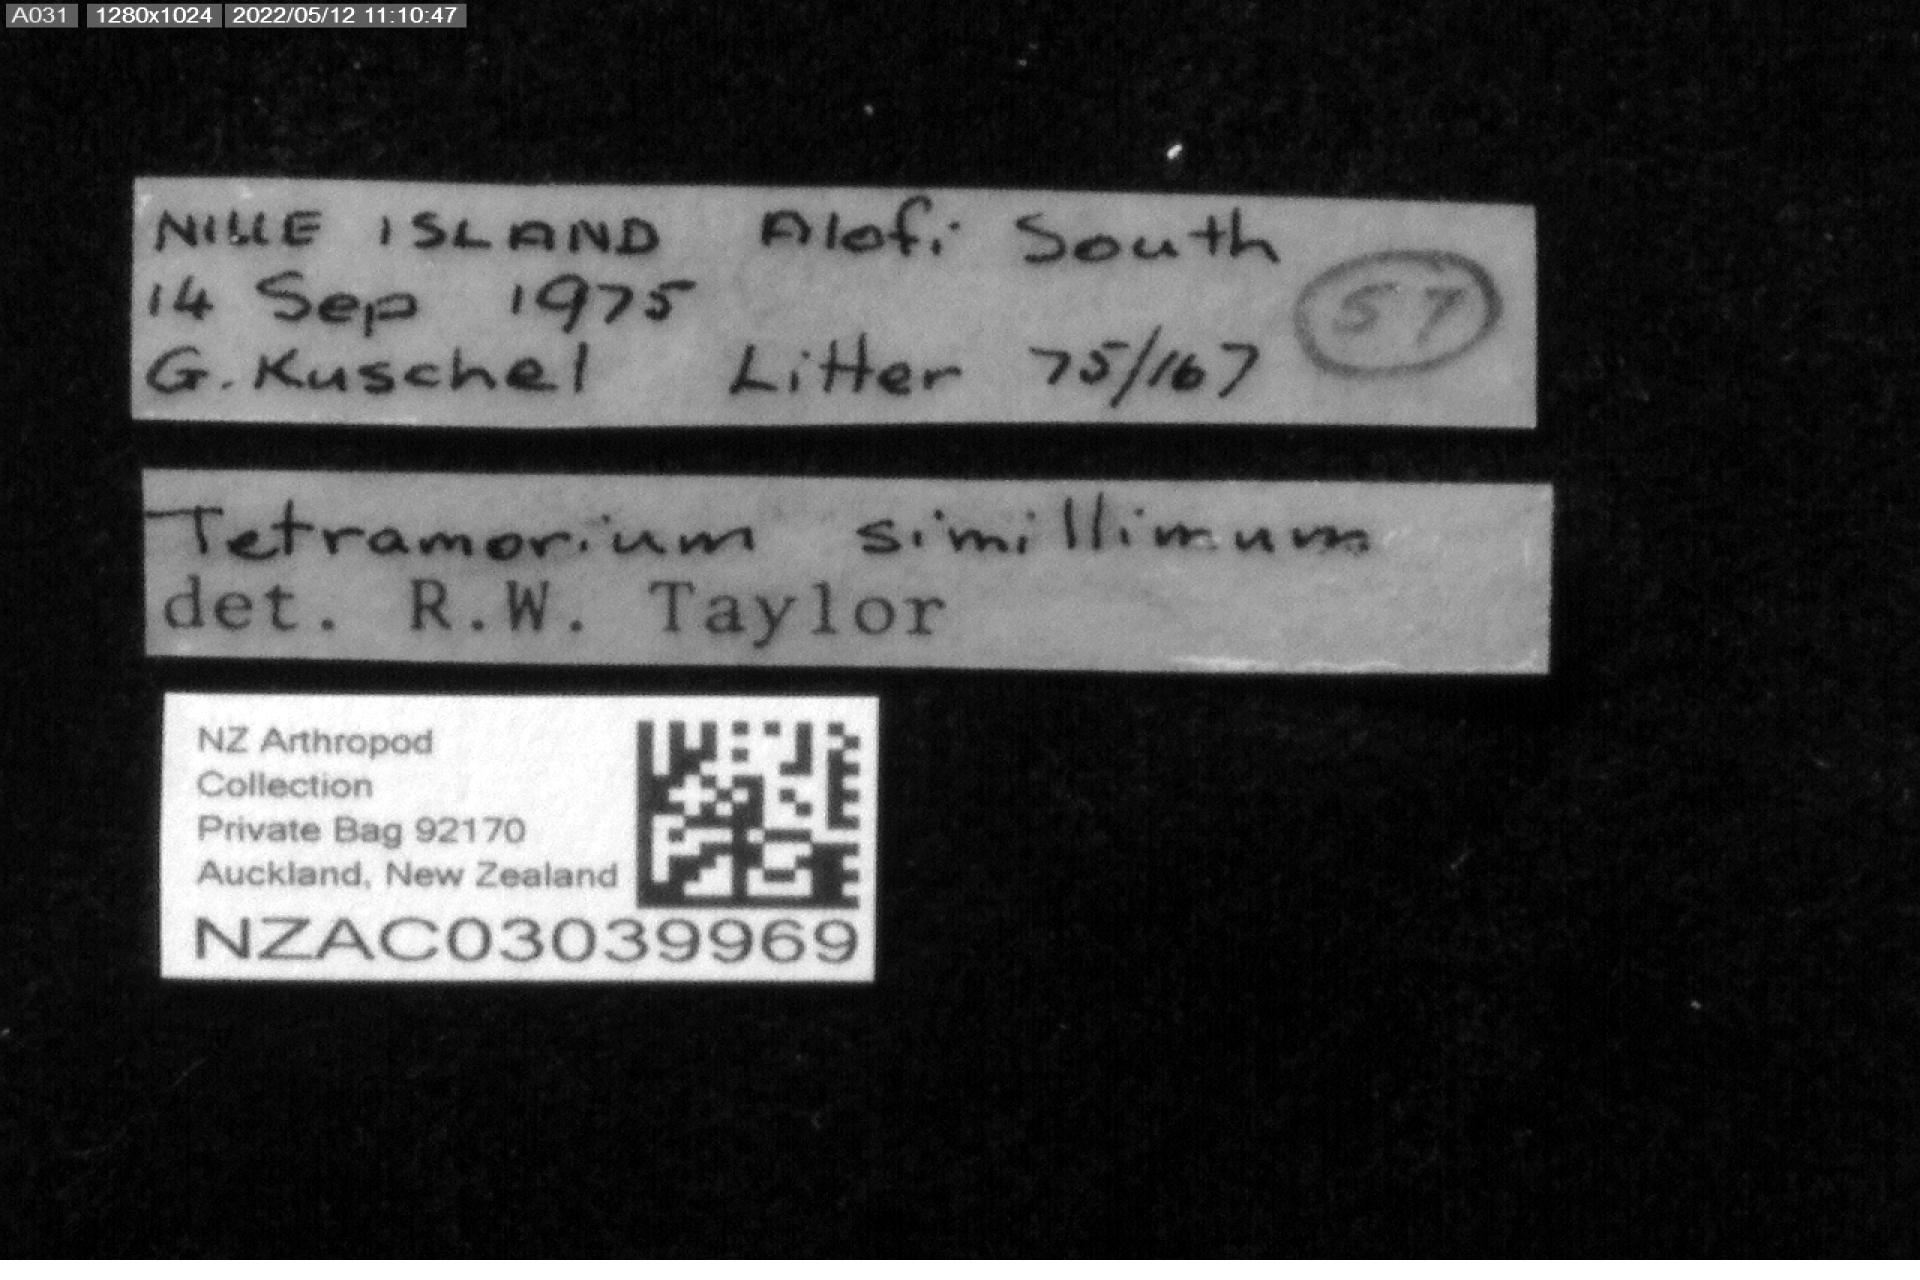 A031 1280x1024 2022/05/12 11:10:47
NIUE ISLAND Alofi South
14 Sep 1975
57
G. Kuschel Litter 75/167
Tetramorium simillimum
det. R.W. Taylor
NZ Arthropod
Collection
Private Bag 92170
Auckland, New Zealand
NZAC03039969